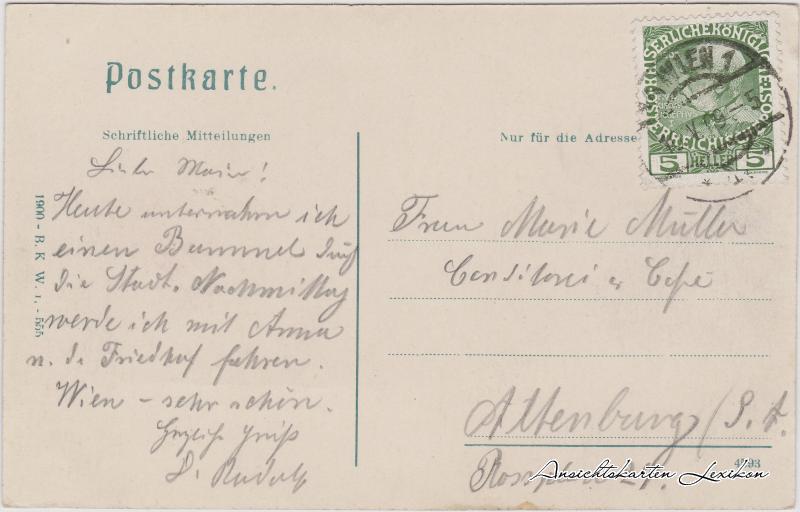 Postkarte.
Schriftliche Mitteilungen
Liebe Marie!
Heute unternahm ich
einen Bummel durch
die Stadt. Nachmittag
werde ich mit Anna
n. d. Friedhof fahren.
Wien - sehr schön.
Herzliche Grüße
D. Rudolf
1900 - B. K. W. I. - 555
Nur für die Adresse
KAISERLICHE KÖNIGLICHE ÖSTERREICHISCHE
5 HELLER 5
WIEN 1
Frau Marie Müller
Conditorei & Café
Altenburg / S. A.
Rossplan 21.
4593
Ansichtskarten Lexikon